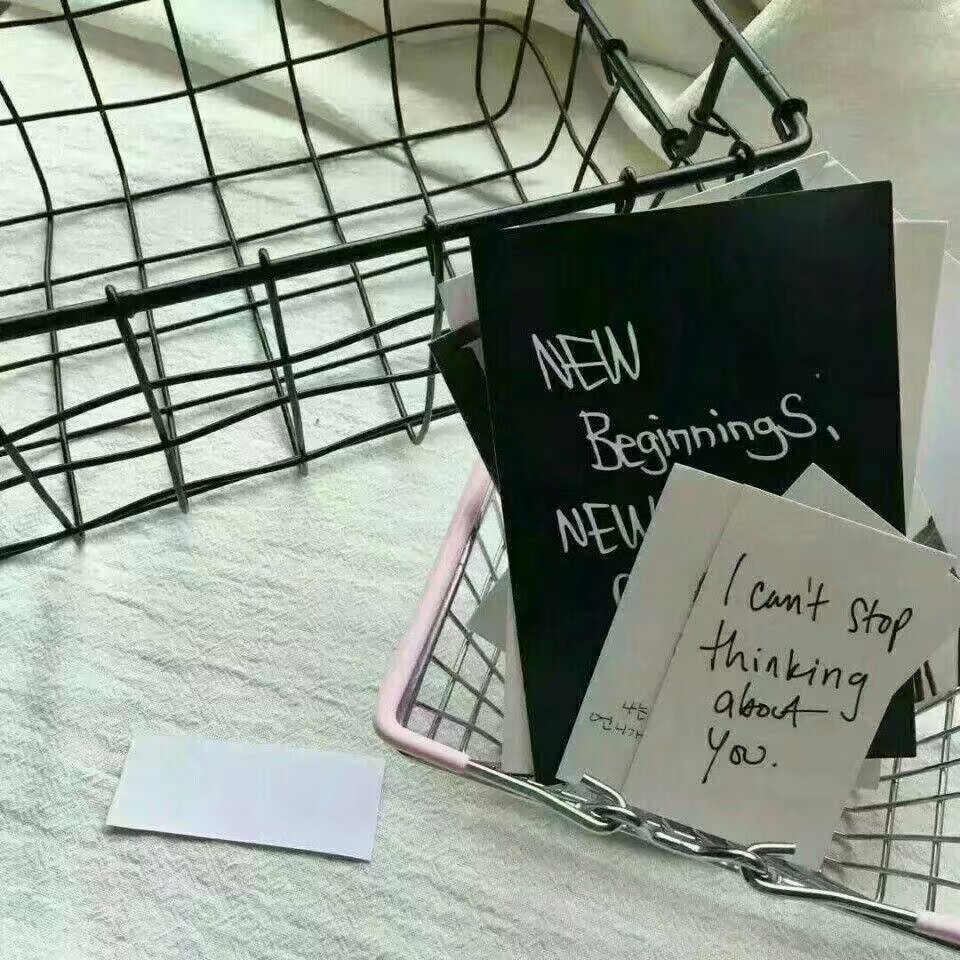 NEW
Beginnings,
NEW
I can't stop
thinking
about
you.
나는
언니가